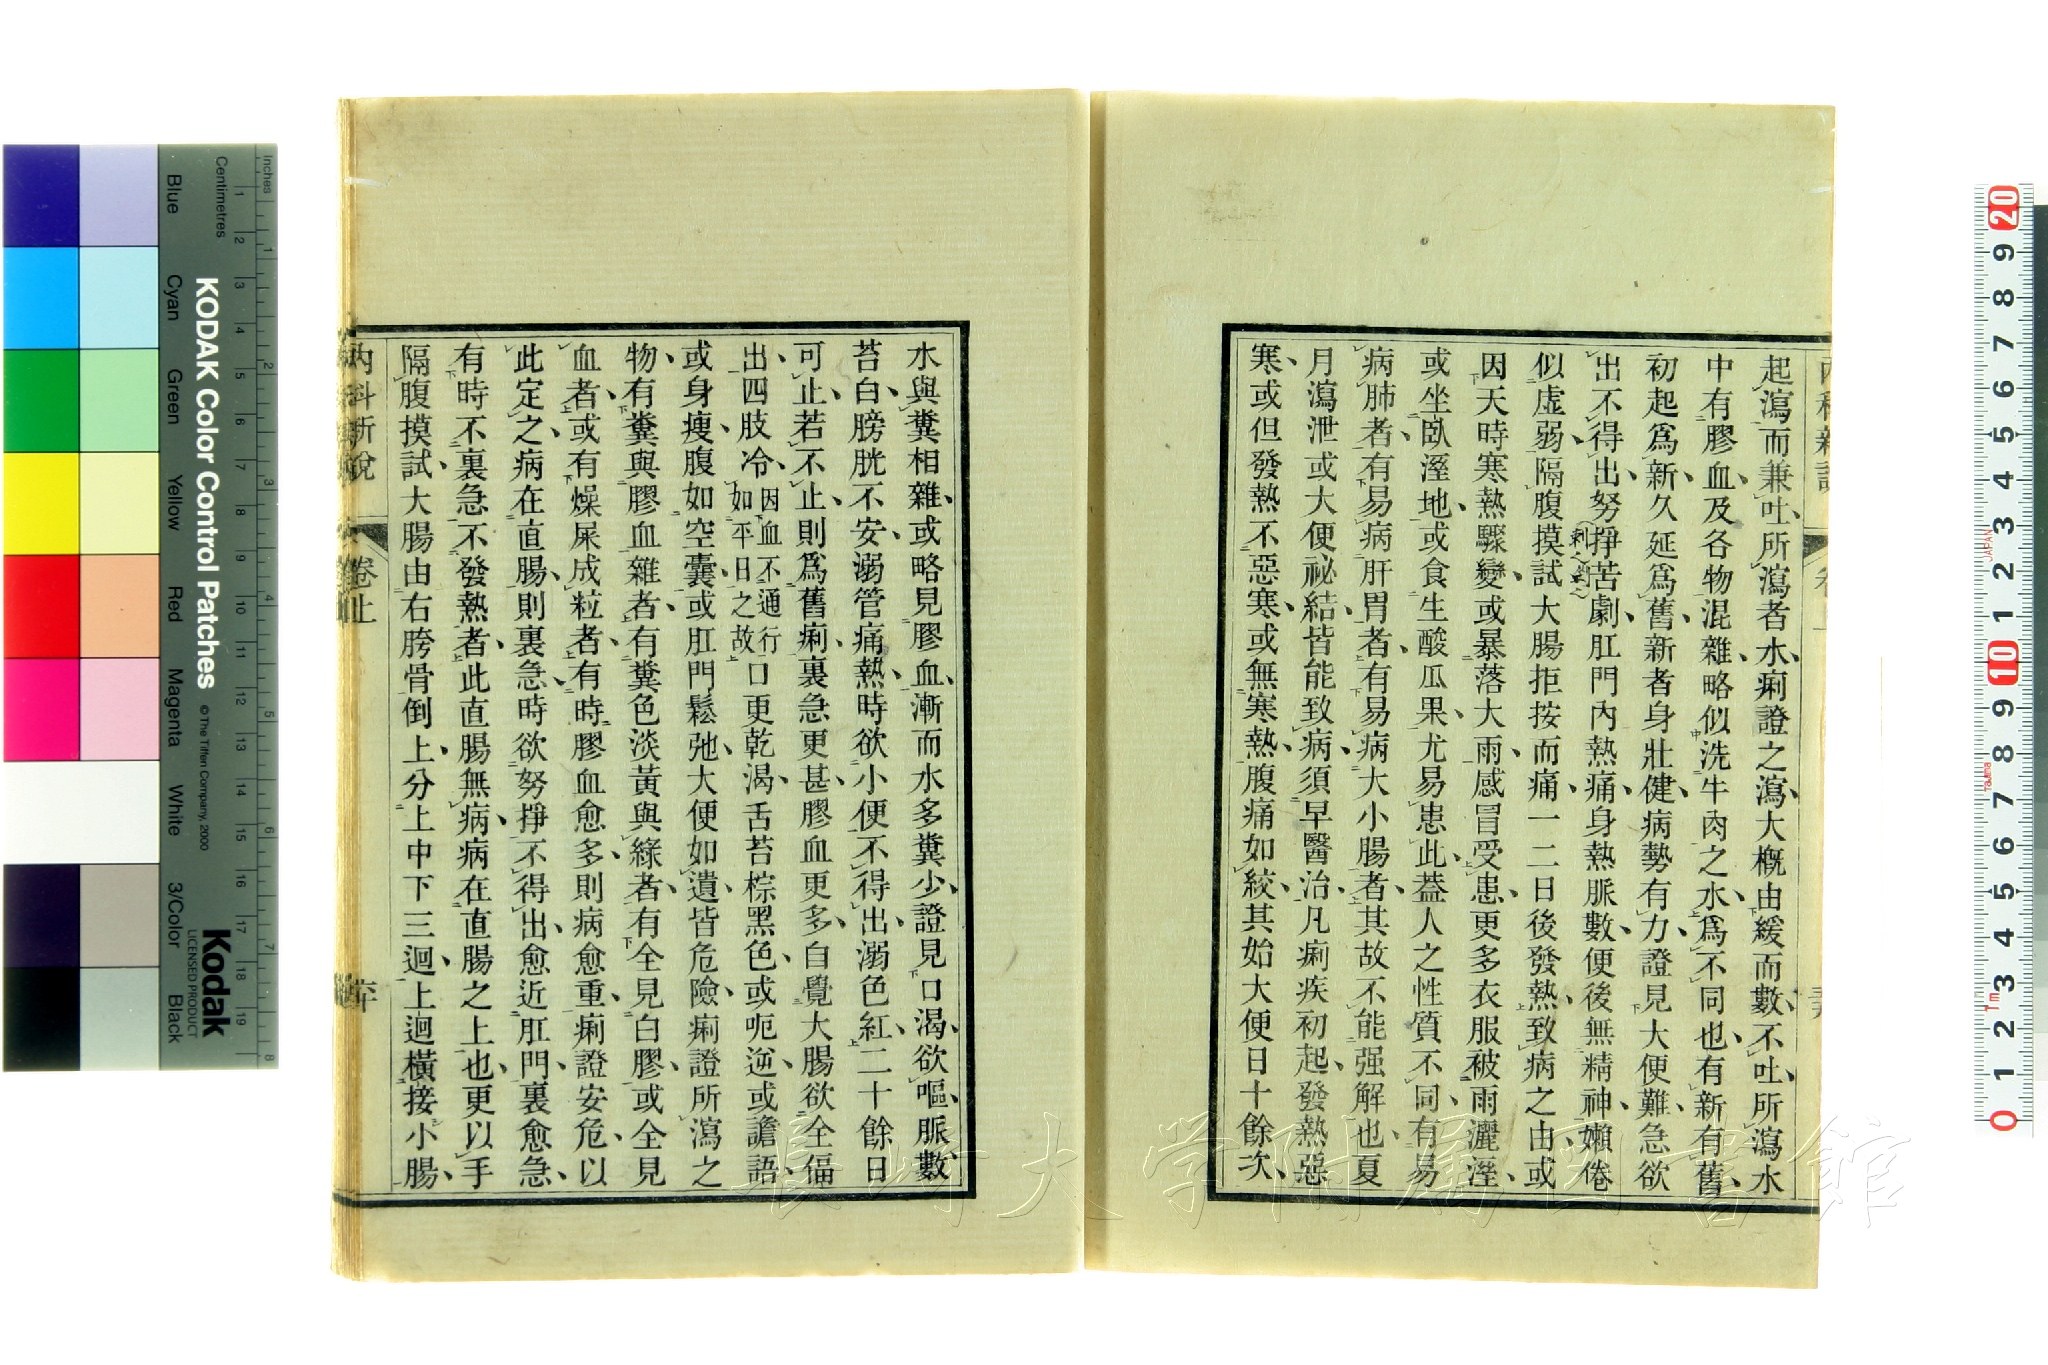 起瀉而兼吐所瀉者水痢證之瀉大概由緩而數不吐所瀉水
中有膠血及各物混雜略似洗牛肉之水爲不同也有新有舊
初起爲新久延爲舊新者身壯健病勢有力證見大便難急欲
出不得出努掙苦劇肛門內熱痛身熱脈數便後無精神嬾倦
似虛弱隔腹摸試大腸拒按而痛一二日後發熱致病之由或
因天時寒熱驟變或暴落大雨感冒受患更多衣服被雨灑溼
或坐臥溼地或食生酸瓜果尤易患此葢人之性質不同有易
病肺者有易病肝胃者有易病大小腸者其故不能强解也夏
月瀉泄或大便祕結皆能致病須早醫治凡痢疾初起發熱惡
寒或但發熱不惡寒或無寒熱腹痛如絞其始大便日十餘次
水與糞相雜或略見膠血漸而水多糞少證見口渴欲嘔脈數
苔白膀胱不安溺管痛熱時欲小便不得出溺色紅二十餘日
可止若不止則爲舊痢裏急更甚膠血更多自覺大腸欲全偪
出四肢冷因血不通行如平日之故口更乾渴舌苔棕黑色或呃逆或譫語
或身瘦腹如空囊或肛門鬆弛大便如遺皆危險痢證所瀉之
物有糞與膠血雜者有糞色淡黃與綠者有全見白膠或全見
血者或有燥屎成粒者有時膠血愈多則病愈重痢證安危以
此定之病在直腸則裏急時欲努掙不得出愈近肛門裏愈急
有時不裏急不發熱者此直腸無病病在直腸之上也更以手
隔腹摸試大腸由右胯骨倒上分上中下三迴上迴橫接小腸
內科新說
卷上
長崎大学附属図書館
KODAK Color Control Patches
© The Tiffen Company, 2000
Kodak
LICENSED PRODUCT
Inches
Centimetres
Blue
Cyan
Green
Yellow
Red
Magenta
White
3/Color
Black